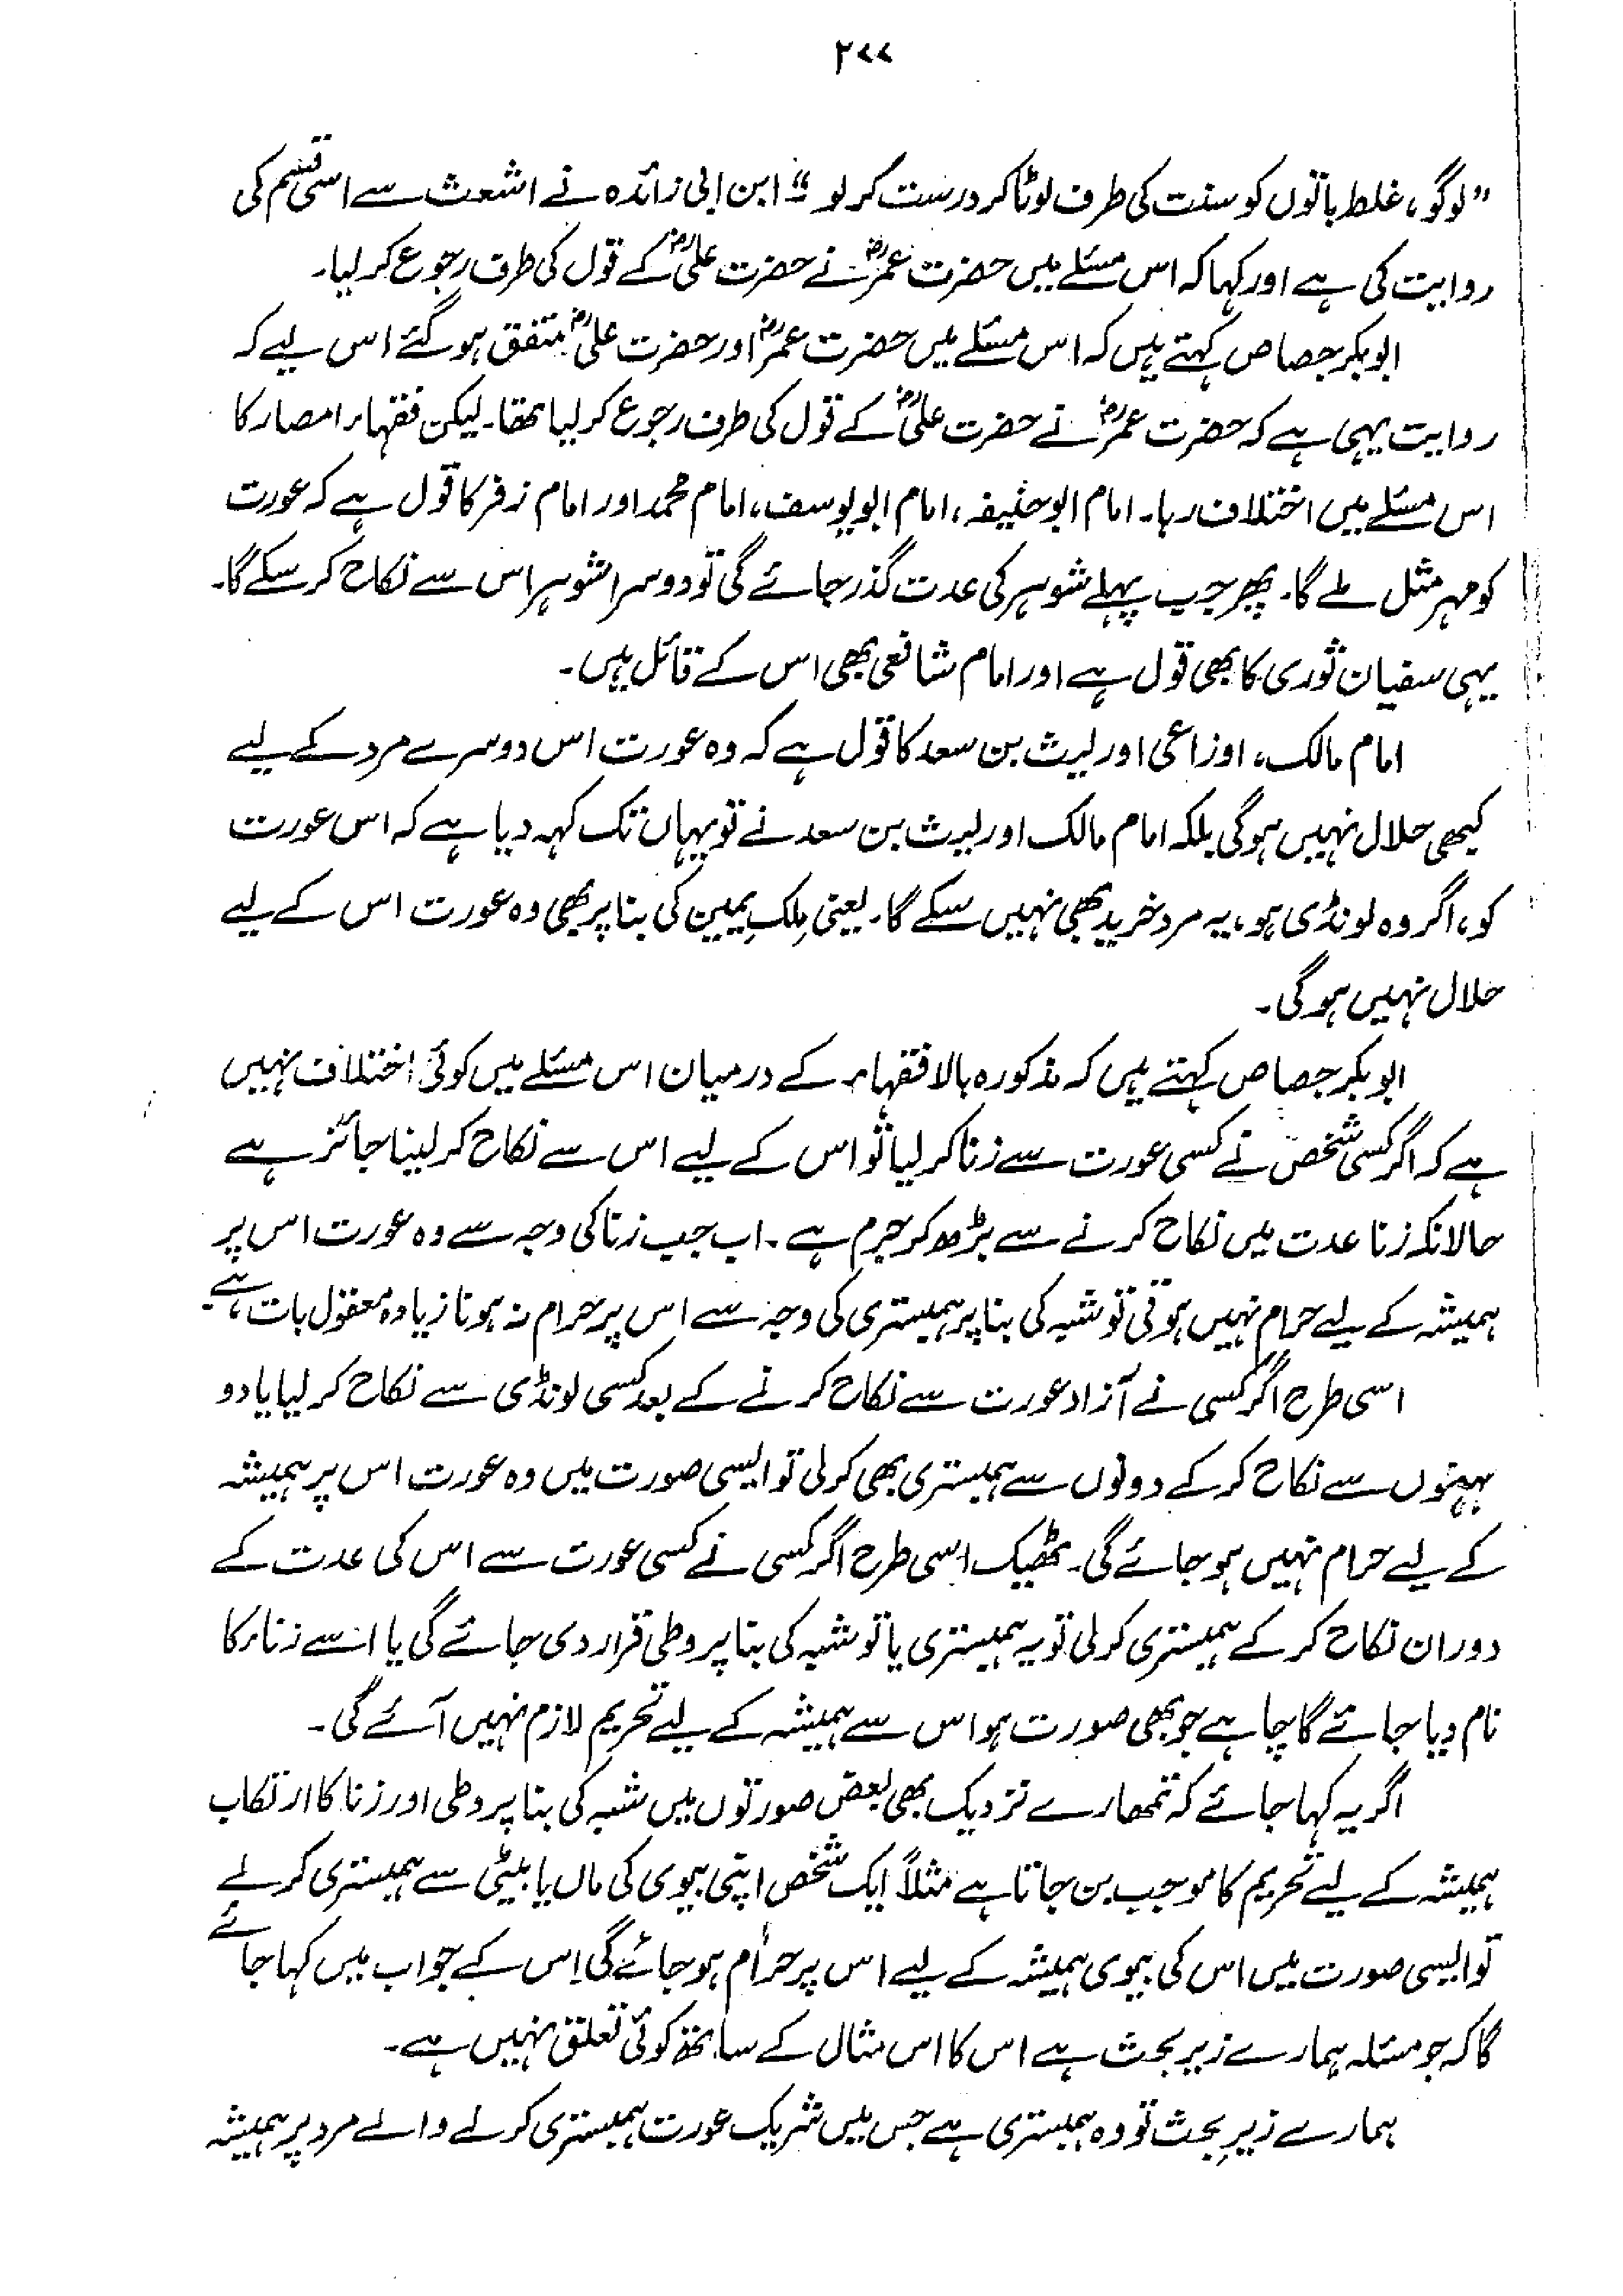 ۲۷۷
”لوگو، غلط باتوں کو سنت کی طرف لوٹا کر درست کر لو۔“ ابن ابی زائدہ نے اشعث سے اسی قسم کی
روایت کی ہے اور کہا کہ اس مسئلے میں حضرت عمرؓ نے حضرت علیؓ کے قول کی طرف رجوع کر لیا۔
ابوبکر جصاص کہتے ہیں کہ اس مسئلے میں حضرت عمرؓ اور حضرت علیؓ متفق ہو گئے اس لیے کہ
روایت یہی ہے کہ حضرت عمرؓ نے حضرت علیؓ کے قول کی طرف رجوع کر لیا تھا۔ لیکن فقہاء امصار کا
اس مسئلے میں اختلاف رہا۔ امام ابو حنیفہ، امام ابو یوسف، امام محمد اور امام زفر کا قول ہے کہ عورت
کو مہر مثل ملے گا۔ پھر جب پہلے شوہر کی عدت گذر جائے گی تو دوسرا شوہر اس سے نکاح کر سکے گا۔
یہی سفیان ثوری کا بھی قول ہے اور امام شافعی بھی اس کے قائل ہیں۔
امام مالک، اوزاعی اور لیث بن سعد کا قول ہے کہ وہ عورت اس دوسرے مرد کے لیے
کبھی حلال نہیں ہوگی بلکہ امام مالک اور لیث بن سعد نے تو یہاں تک کہہ دیا ہے کہ اس عورت
کو، اگر وہ لونڈی ہو، یہ مرد خرید بھی نہیں سکے گا۔ یعنی مِلکِ یمین کی بنا پر بھی وہ عورت اس کے لیے
حلال نہیں ہوگی۔
ابوبکر جصاص کہتے ہیں کہ مذکورہ بالا فقہاء کے درمیان اس مسئلے میں کوئی اختلاف نہیں
ہے کہ اگر کسی شخص نے کسی عورت سے زنا کر لیا تو اس کے لیے اس سے نکاح کر لینا جائز ہے
حالانکہ زنا عدت میں نکاح کرنے سے بڑھ کر جرم ہے۔ اب جب زنا کی وجہ سے وہ عورت اس پر
ہمیشہ کے لیے حرام نہیں ہوتی تو شبہ کی بنا پر ہمبستری کی وجہ سے اس پر حرام نہ ہونا زیادہ معقول بات ہے۔
اسی طرح اگر کسی نے آزاد عورت سے نکاح کرنے کے بعد کسی لونڈی سے نکاح کر لیا یا دو
بہنوں سے نکاح کر کے دونوں سے ہمبستری بھی کر لی تو ایسی صورت میں وہ عورت اس پر ہمیشہ
کے لیے حرام نہیں ہو جائے گی۔ ٹھیک اسی طرح اگر کسی نے کسی عورت سے اس کی عدت کے
دوران نکاح کر کے ہمبستری کر لی تو یہ ہمبستری یا تو شبہ کی بنا پر وطی قرار دی جائے گی یا اسے زنا کا
نام دیا جائے گا چاہے جو بھی صورت ہو اس سے ہمیشہ کے لیے تحریم لازم نہیں آئے گی۔
اگر یہ کہا جائے کہ تمھارے نزدیک بھی بعض صورتوں میں شبہ کی بنا پر وطی اور زنا کا ارتکاب
ہمیشہ کے لیے تحریم کا موجب بن جاتا ہے مثلاً ایک شخص اپنی بیوی کی ماں یا بیٹی سے ہمبستری کر لے
تو ایسی صورت میں اس کی بیوی ہمیشہ کے لیے اس پر حرام ہو جائے گی اِس کے جواب میں کہا جائے
گا کہ جو مسئلہ ہمارے زیر بحث ہے اس کا اس مثال کے ساتھ کوئی تعلق نہیں ہے۔
ہمارے زیرِ بحث تو وہ ہمبستری ہے جس میں شریک عورت ہمبستری کرنے والے مرد پر ہمیشہ